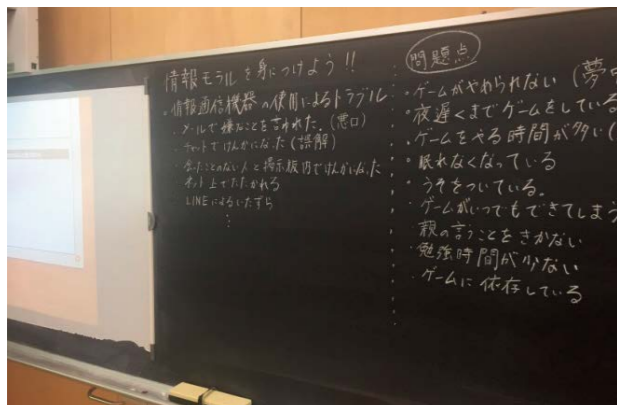 情報モラルを身につけよう!!
・情報通信機器の使用によるトラブル
・メールで嫌なことを言われた。(悪口)
・チャットでけんかになった(誤解)
・会ったことのない人と掲示板内でけんかになった
・ネット上でたたかれる
・LINEによるいたずら
⋮
問題点
・ゲームがやめられない(夢中
・夜遅くまでゲームをしている
・ゲームをやる時間が多い(
・眠れなくなっている
・うそをついている。
・ゲームがいつでもできてしまう
・親の言うことをきかない
・勉強時間が少ない
・ゲームに依存している